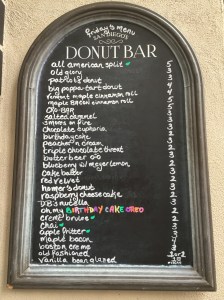 Friday's Menu
SAN DIEGO'S
DONUT BAR
all american split ✓ 5
old glory 3
patriots donut 3
big poppa-tart donut 4
vermont maple cinnamon roll 4
maple bacon cinnamon roll 5
oxo-bar
salted caramel 3
smores on fire 3
chocolate euphoria 3
birthday cake 2
peaches n cream 3
triple chocolate threat 3
butter beer 3
blueberry w/ meyer lemon 3
cake batter 3
red velvet 3
homer's donut 3
raspberry cheesecake 3
pb's nutella 3
oh my BIRTHDAY CAKE OREO
creme brulee ✓ 3
chai ✓ 3
apple fritter ✓
maple bacon
boston creme 3
old fashioned 2
vanilla bean glazed